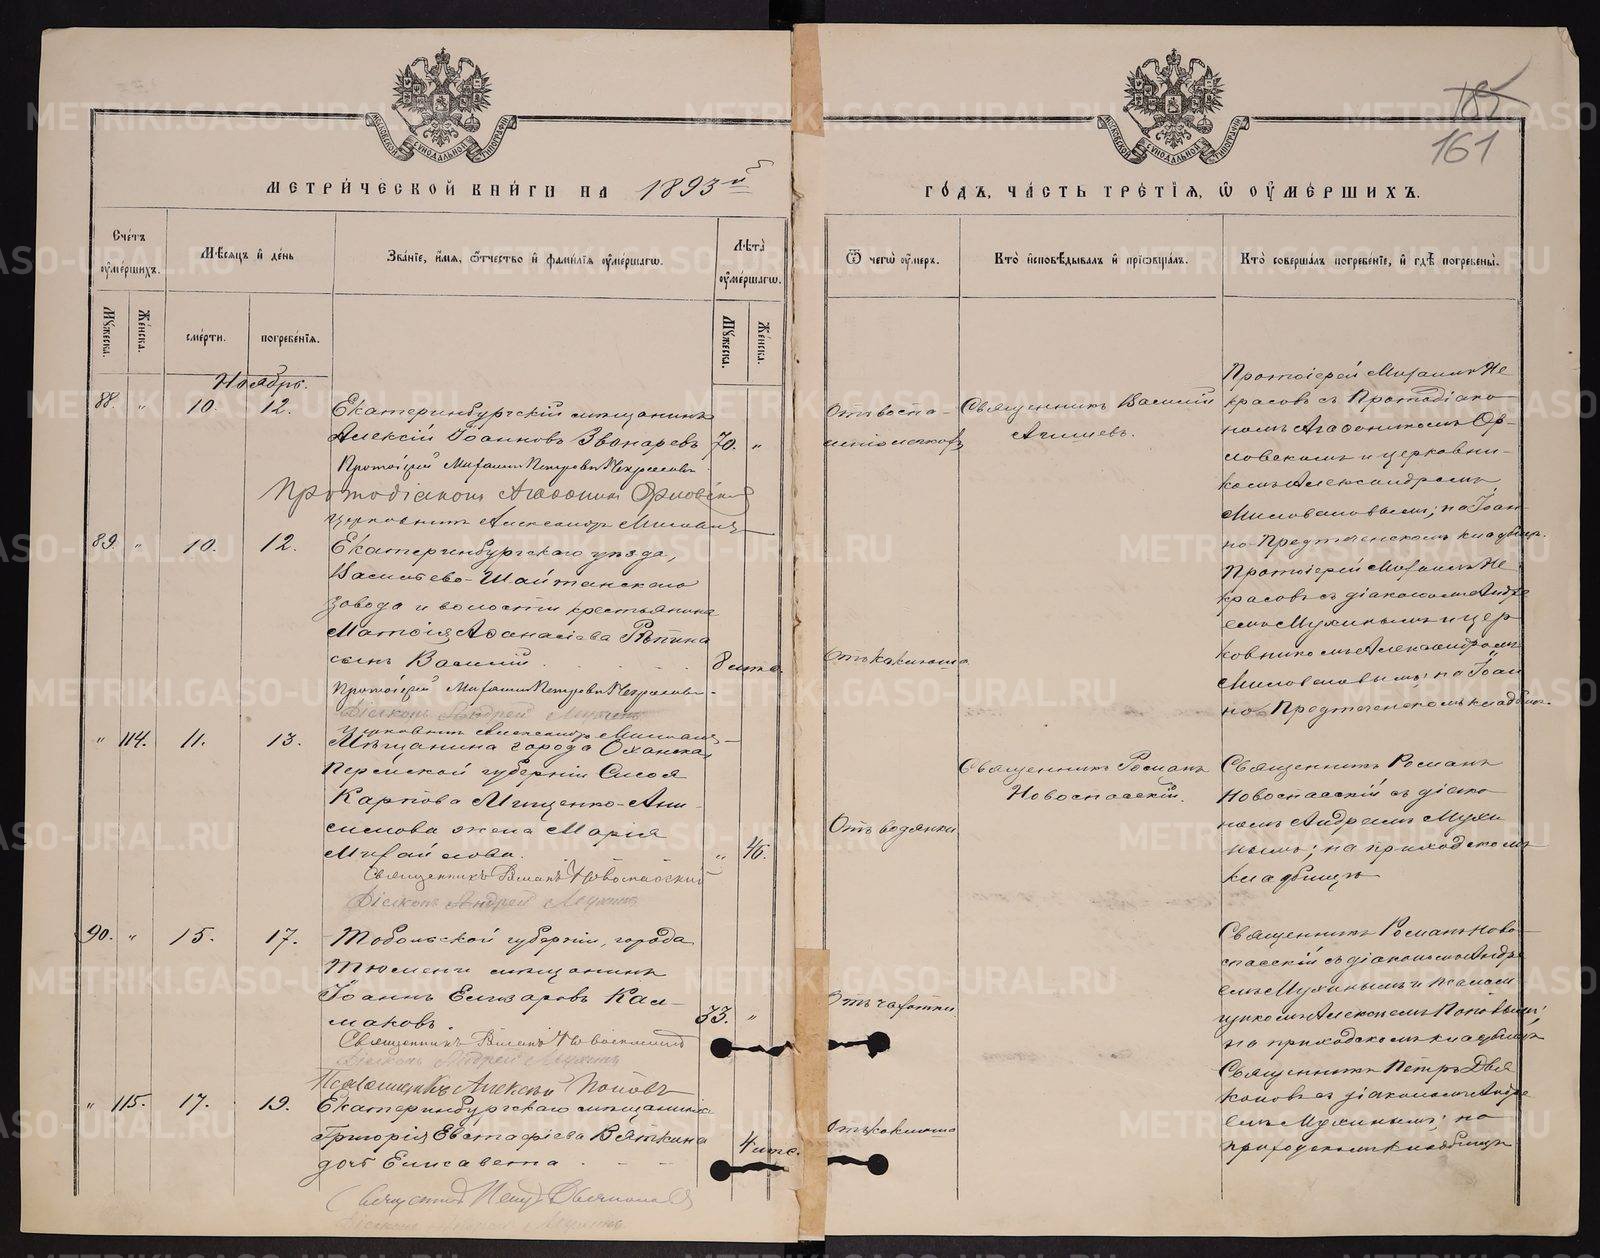 185
161
МОСКОВСКОЙ СѴНОДАЛЬНОЙ ТИПОГРАФІИ
МОСКОВСКОЙ СѴНОДАЛЬНОЙ ТИПОГРАФІИ
МЕТРИ́ЧЕСКОЙ КНИ́ГИ НА 1893й
ГО́ДЪ, ЧА́СТЬ ТРЕ́ТІѦ, Ѡ ОУМЕ́РШИХЪ.
Сче́тъ оумершихъ.
Мужеска.
Женска.
Мѣсяцъ и день
смерти.
погребенія.
Званіе, имя, ѿчество и фамилія оумершагѡ.
Лѣта оумершагѡ.
Мужеска.
Женска.
Ѿ чегѡ оумеръ.
Кто исповѣдывалъ и пріѡбщалъ.
Кто совершалъ погребеніе, и гдѣ погребены.
Ноябрь.
88. " 10. 12.
Екатеринбургскій мѣщанинъ
Алексій Іоанновъ Звонаревъ 70. "
Протоіерей Михаилъ Петровъ Некрасовъ
Протодіаконъ Агафоникъ Орловскій
Церковникъ Александръ Милован
Отъ воспа-
Священникъ Василій
Протоіерей Михаилъ Не
красовъ съ Протодіако
номъ Агафоникомъ Ор-
ловскимъ и церковни-
комъ Александромъ
Миловановымъ; на Іоан
но-Предтеченскомъ кладбищѣ.
89. " 10. 12.
Екатеринбургскаго уѣзда,
Васильево-Шайтанскаго
завода и волости крестьянина
Матѳія Аѳанасіева Рѣпина
сынъ Василій 8 мѣс.
Протоіерей Михаилъ Петровъ Некрасовъ
Діаконъ Андрей Мухинъ
Церковникъ Александръ Милован
Отъ коклюша
Протоіерей Михаилъ Не
красовъ съ діакономъ Андре
емъ Мухинымъ и цер
ковникомъ Александромъ
Миловановымъ; на Іоан
но-Предтеченскомъ кладбищѣ.
" 114. 11. 13.
Мѣщанина города Оханска
Пермской губерніи Сысоя
Карпова Мищенко-Ани-
симова жена Марія
Михайлова. " 46.
Священникъ Романъ Новоспасскій
Діаконъ Андрей Мухинъ
Отъ водянки
Священникъ Романъ
Новоспасскій.
Священникъ Романъ
Новоспасскій съ діако
номъ Андреемъ Мухи
нымъ; на приходскомъ
кладбищѣ
90. " 15. 17.
Тобольской губерніи, города
Тюмени мѣщанинъ
Іоаннъ Елизаровъ Кал-
маковъ. 33. "
Священникъ Романъ Новоспасскій
Діаконъ Андрей Мухинъ
Псаломщикъ Алексѣй Поповъ
Отъ чахотки
Священникъ Романъ Ново-
спасскій съ діакономъ Андре
емъ Мухинымъ и псалом
щикомъ Алексѣемъ Поповымъ;
на приходскомъ кладбищѣ
" 115. 17. 19.
Екатеринбургскаго мѣщанина
Григорія Евстафіева Вяткина
дочь Елисавета 4 мѣс.
Священникъ Петръ Дьяконовъ
Діаконъ Андрей Мухинъ
Отъ коклюша
Священникъ Петръ Дья
коновъ съ діакономъ Андре
емъ Мухинымъ; на
приходскомъ кладбищѣ
METRIKI.GASO-URAL.RU